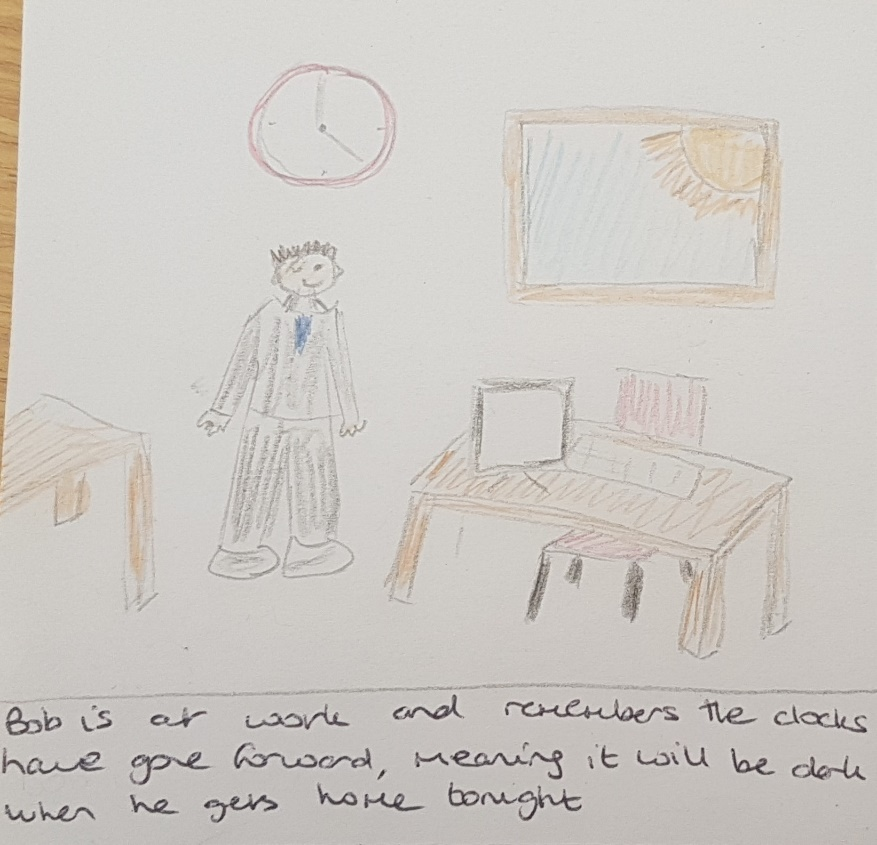 Bob is at work and remembers the clocks
have gone forward, meaning it will be dark
when he gets home tonight